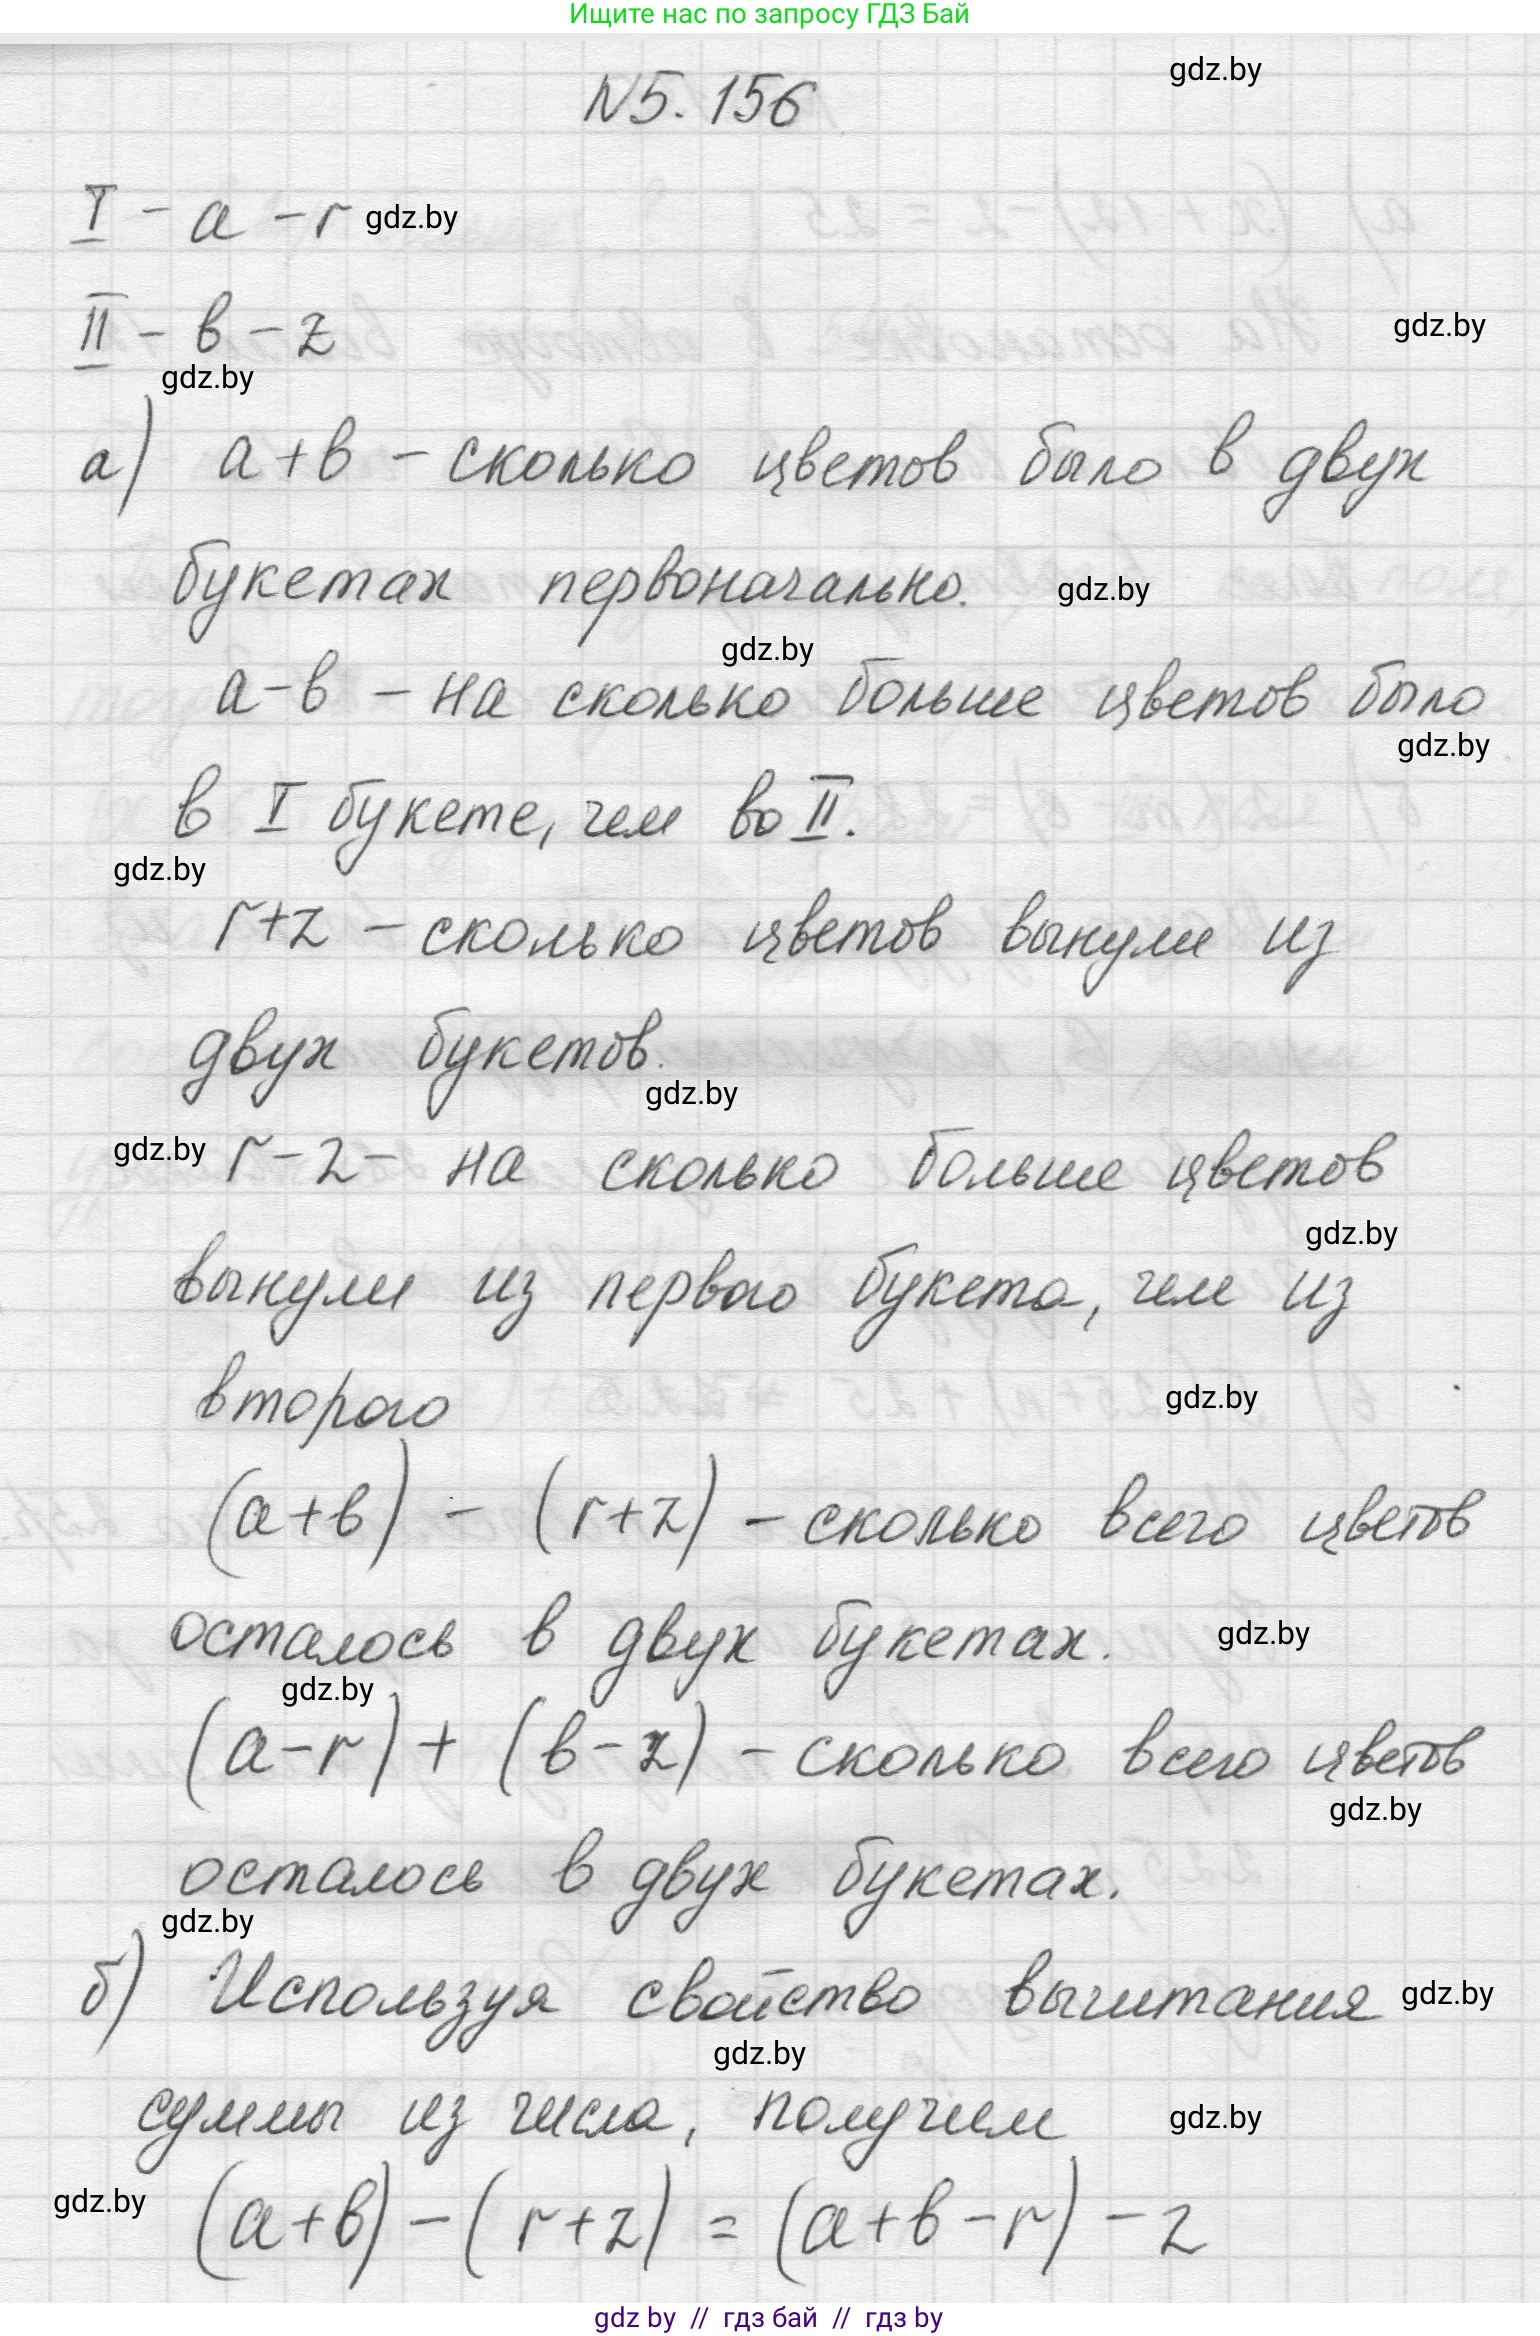 Ищите нас по запросу ГДЗ Бай
gdz.by
N5.156
I - a - r gdz.by
II - в - z
gdz.by
gdz.by
а) a+в - сколько цветов было в двух
букетах первоначально. gdz.by
gdz.by
a-в - на сколько больше цветов было
gdz.by
в I букете, чем во II.
gdz.by
r+z - сколько цветов вынули из
двух букетов.
gdz.by
gdz.by r-z- на сколько больше цветов
gdz.by
вынули из первого букета, чем из
второго
gdz.by
(a+в) - (r+z) - сколько всего цветов
осталось в двух букетах. gdz.by
gdz.by
(a-r)+(в-z) - сколько всего цветов
gdz.by
осталось в двух букетах.
gdz.by
б) Используя свойство вычитания gdz.by
gdz.by
суммы из числа, получим gdz.by
gdz.by (a+в)-(r+z) = (a+в-r)-z
gdz by // гдз бай // гдз by